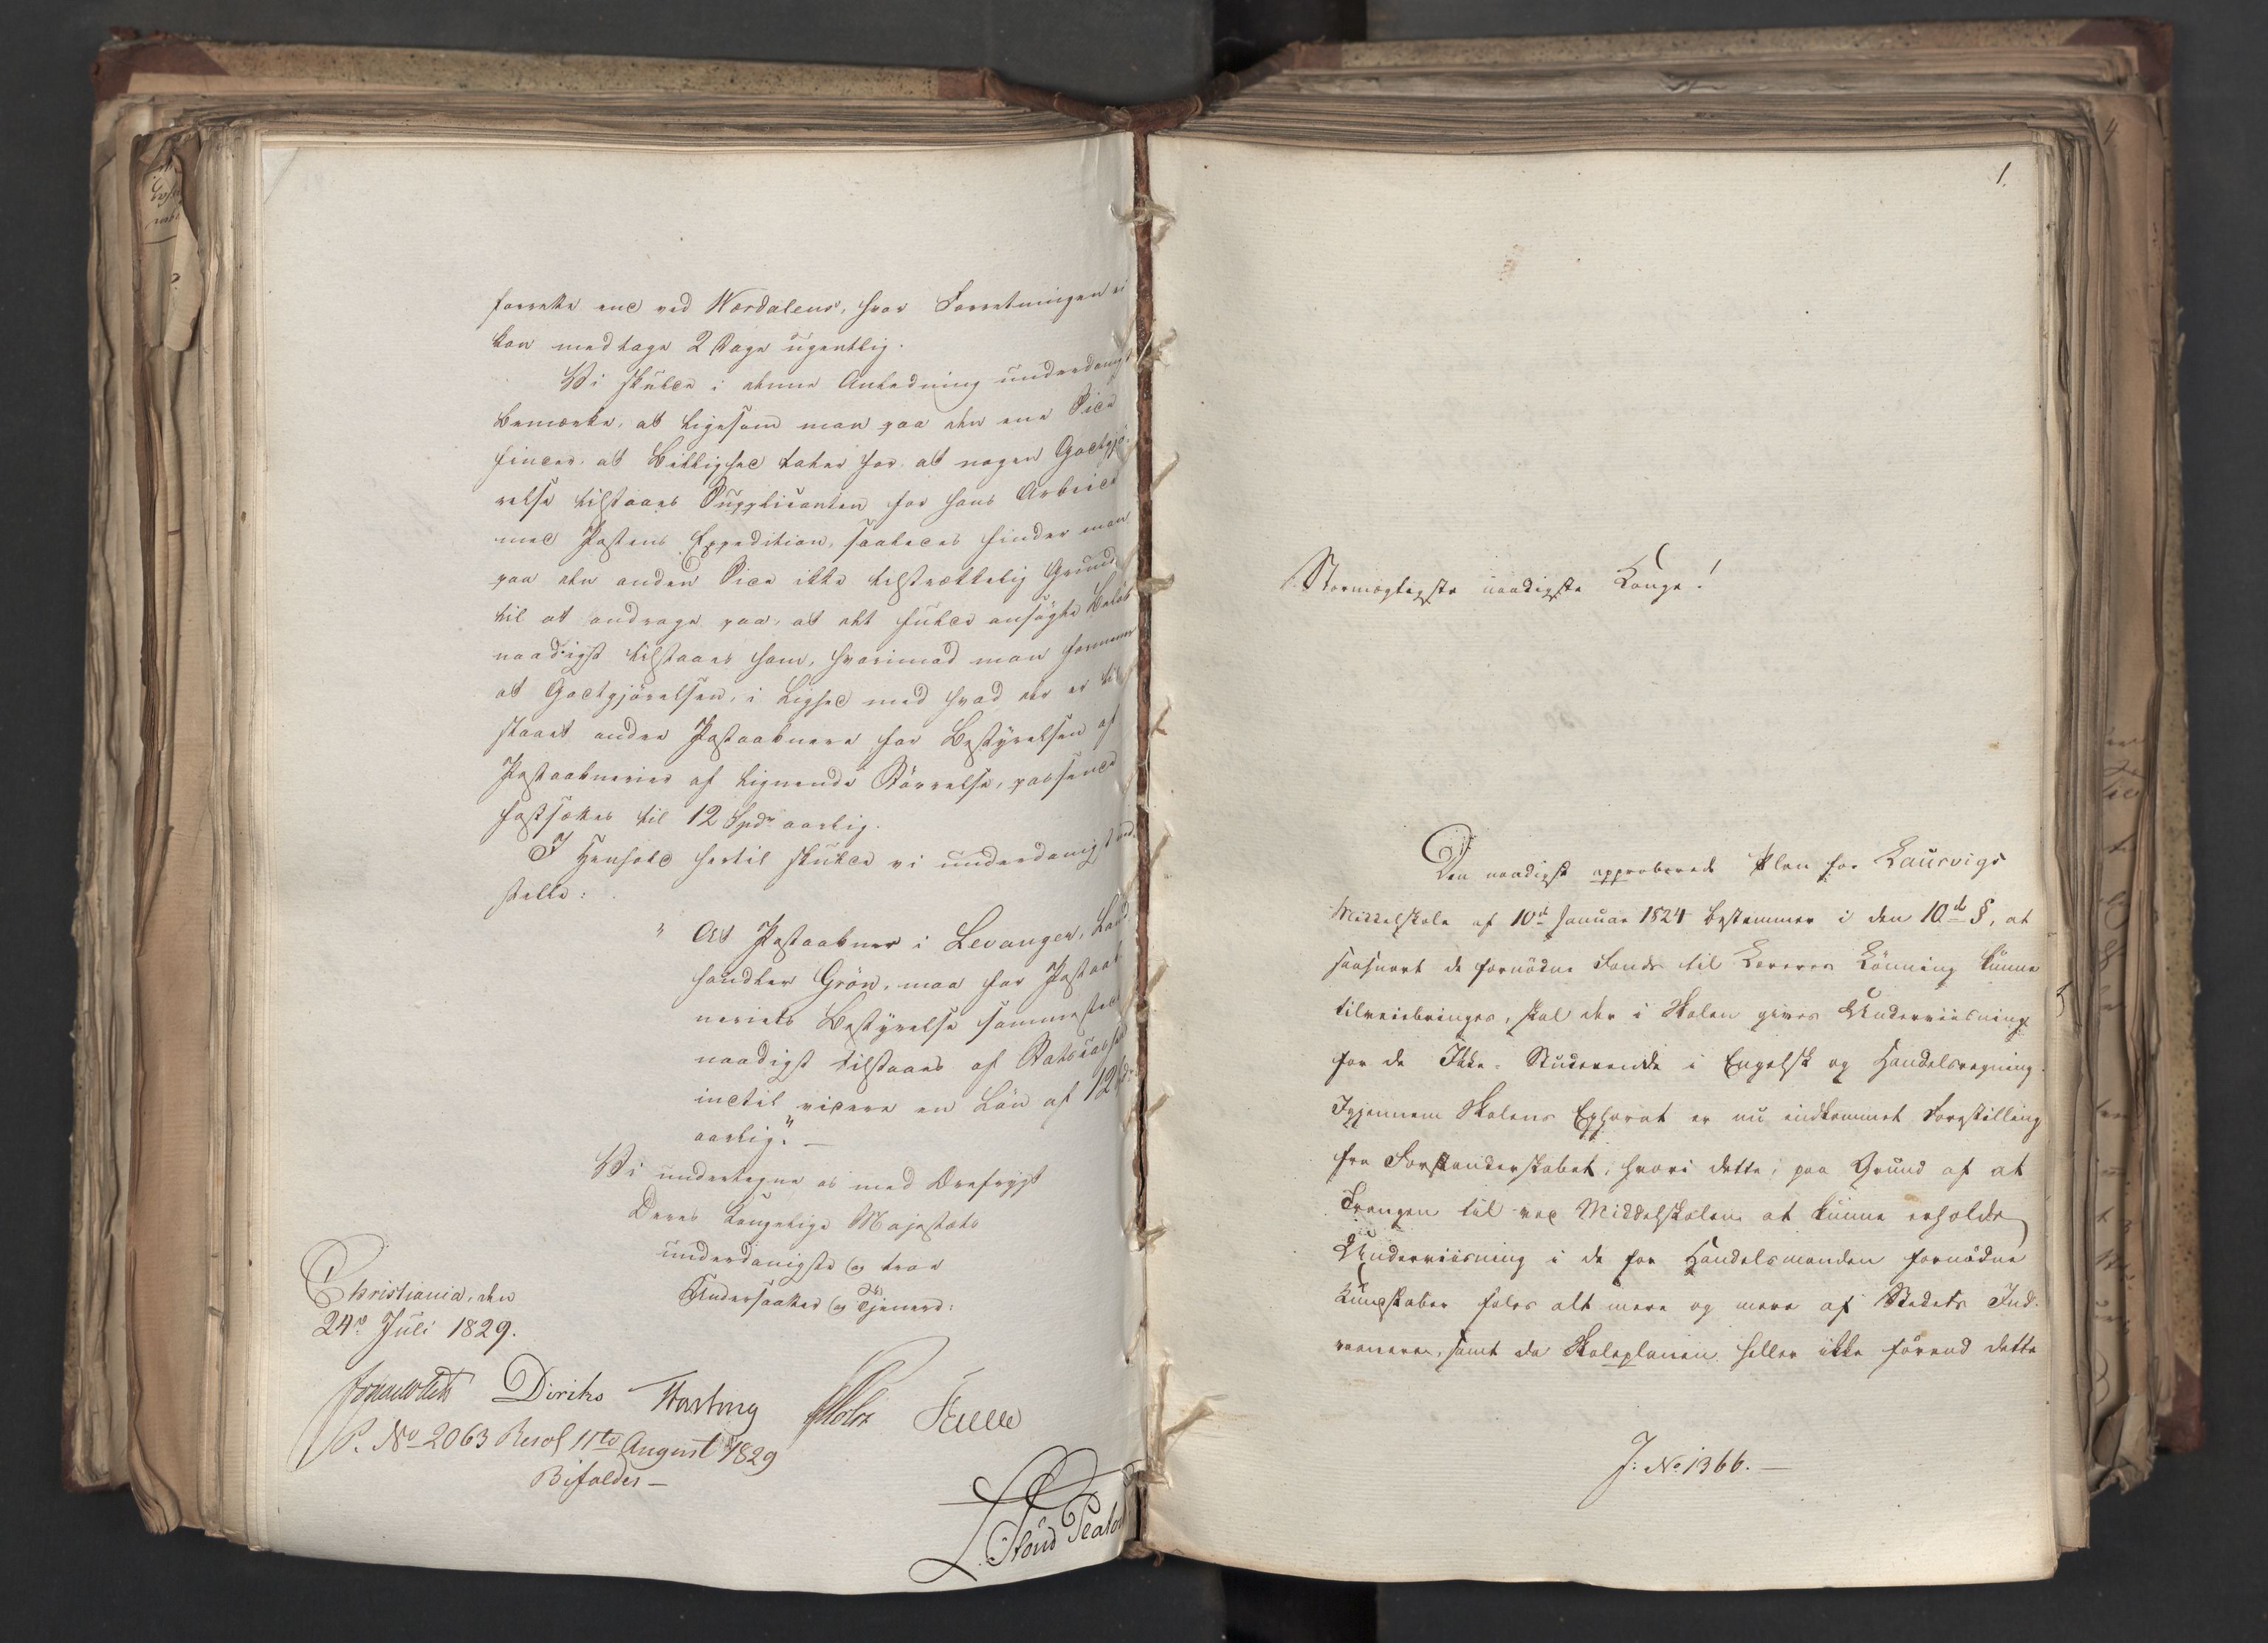 forrette end ved Værdalens, hvor Forretningen ei
kan medtage 2 Dage ugentlig.
Vi skulde i denne Anledning underdanigst
bemærke, at ligesom man paa den ene Side
finder, at Billighed taler for, at nogen Godtgjø-
relse tilstaaes Supplicanten for hans Arbeide
med Postens Expedition, saaledes finder man
paa den anden Side ikke tilstrækkelig Grund
til at andrage paa, at det fulde ansøgte Beløb
naadigst tilstaaes ham, hvorimod man formener
at Godtgjørelsen, i Lighed med hvad der er til-
staaet andre Postaabnere for Bestyrelsen af
Postaabnerier af lignende Størrelse, passende
fastsættes til 12 Spdr aarlig.
I Henhold hertil skulde vi underdanigst ind-
stille:
"At Postaabner i Levanger, Land-
handler Grøn, maa for Postaab-
neriets Bestyrelse sammesteds
naadigst tilstaaes af Statscassen
indtil videre en Løn af 12 Spdr
aarlig." —
Vi undertegne os med Ærefrygt
Deres Kongelige Majestæts
underdanigste og troe
Undersaatter og Tjenere:
Christiania, den
24de Juli 1829.
Diriks Holst
P. No 2063 Resol 11te August 1829
Bifaldes —
1.
Stormægtigste naadigste Konge!
Den naadigst approberede Plan for Laurvigs
Middelskole af 10de Januar 1824 bestemmer i den 10de §, at
saasnart de fornødne Fonds til Lærerens Lønning kunne
tilveiebringes, skal der i Skolen gives Underviisning
for de Ikke-Studerende i Engelsk og Handelsregning.
Igjennem Skolens Ephorat er nu indkommet Forestilling
fra Forstanderskabet, hvori dette, paa Grund af at
Trangen til ved Middelskolen at kunne erholde
Underviisning i de for Handelsmanden fornødne
Kundskaber føles alt mere og mere af Stedets Ind-
vaanere, samt da Skoleplanen heller ikke førend dette
J: No 1366. —